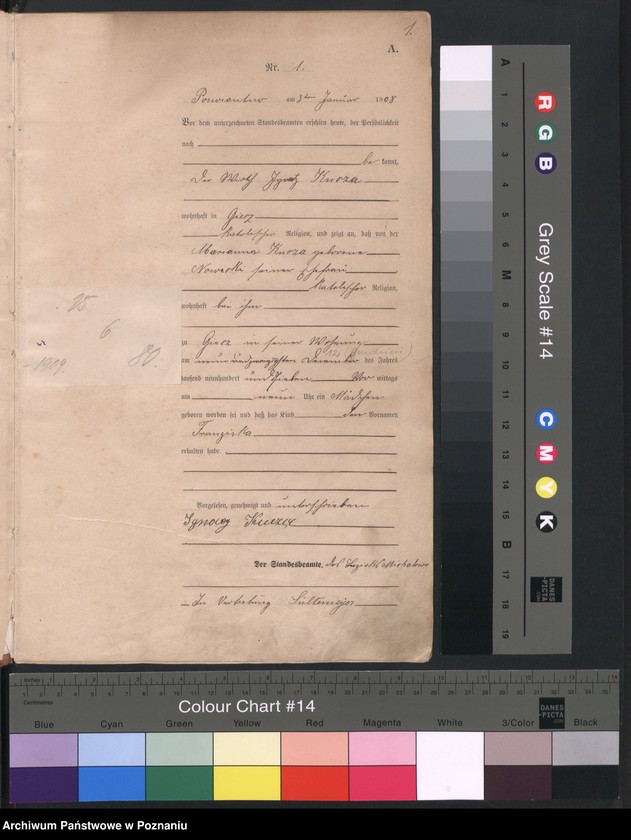 1.
A.
Nr. 1.
am 3ten Januar 1908
Vor dem unterzeichneten Standesbeamten erschien heute, der Persönlichkeit
nach
be kannt,
Der Wirth Ignatz Kucza
wohnhaft in Giecz
katolischer Religion, und zeigt an, daß von der
Marianna Kucza geborene
Nowicki seiner Ehefrau
katolischer Religion,
wohnhaft bei ihm
zu Giecz in seiner Wohnung
am neunundzwanzigsten Dezember des Jahres
tausend neunhundert und sieben Vor mittags
um neun Uhr ein Mädchen
geboren worden sei und daß das Kind den Vornamen
Franziska
erhalten habe.
Vorgelesen, genehmigt und unterschrieben
Ignacy Kucza
Der Standesbeamte.
In Vertretung
25
6
80.
5
1909.
Grey Scale #14
A 1 2 3 4 5 6 M 8 9 10 11 12 13 14 15 B 17 18 19
R G B
C M Y K
DANES-PICTA.COM
Inches
Centimetres
Colour Chart #14
DANES-PICTA.COM
Blue Cyan Green Yellow Red Magenta White 3/Color Black
Archiwum Państwowe w Poznaniu